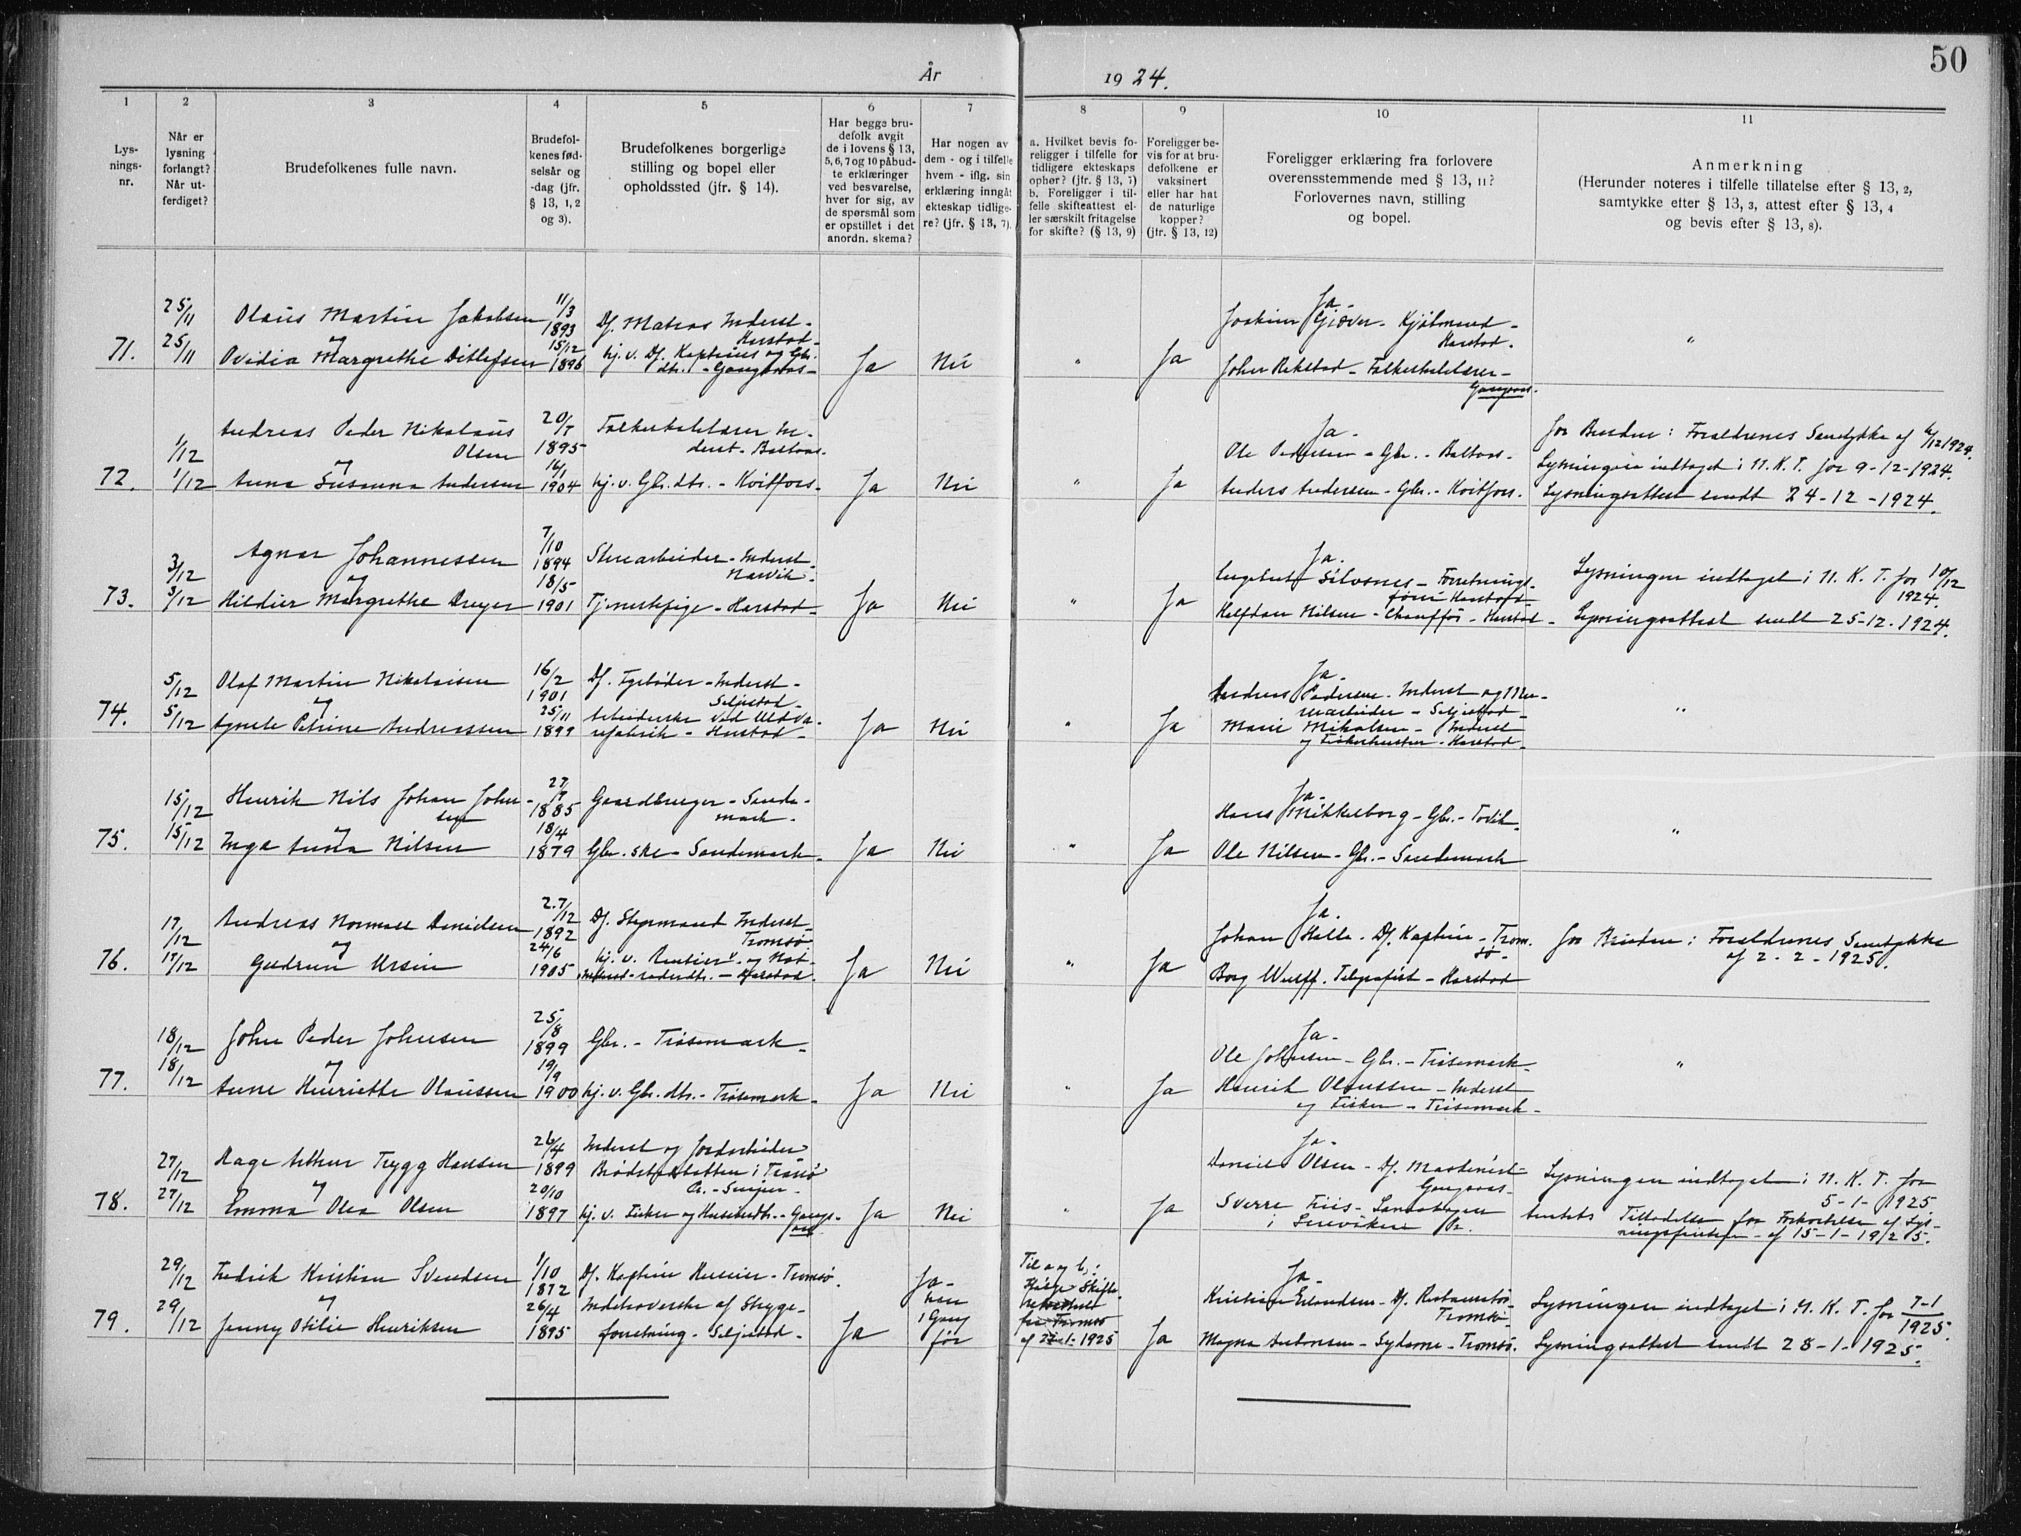 50
År 1924.
1 2 3 4 5 6 7 8 9 10 11
Lys-
nings-
nr.
Når er
lysning
forlangt?
Når ut-
ferdiget?
Brudefolkenes fulle navn.
Brudefol-
kenes fød-
selsår og
-dag (jfr.
§ 13, 1, 2
og 3).
Brudefolkenes borgerlige
stilling og bopel eller
opholdssted (jfr. § 14).
Har begge bru-
defolk avgit
de i lovens § 13,
5, 6, 7 og 10 påbud-
te erklæringer
ved besvarelse,
hver for sig, av
de spørsmål som
er opstillet i det
anordn. skema?
Har nogen av
dem - og i tilfelle
hvem - iflg. sin
erklæring inngåt
ekteskap tidlige-
re? (jfr. § 13, 7).
a. Hvilket bevis fo-
religger i tilfelle for
tidligere ekteskaps
ophør? (jfr. § 13, 7)
b. Foreligger i til-
felle skifteattest el-
ler særskilt fritagelse
for skifte? (§ 13, 9)
Foreligger be-
vis for at bru-
defolkene er
vaksinert
eller har hat
de naturlige
kopper?
(jfr. § 13, 12)
Foreligger erklæring fra forlovere
overensstemmende med § 13, 11?
Forlovernes navn, stilling
og bopel.
Anmerkning
(Herunder noteres i tilfelle tillatelse efter § 13, 2,
samtykke efter § 13, 3, attest efter § 13, 4
og bevis efter § 13, 8).
71.
25/11
25/11
Olaus Martin Jakobsen
og
Ovidia Margrethe Ditlefsen
11/3
1893
15/12
1896
Df. Matros Inderst -
Harstad -
hj. v. Df. Kapteins og Gbr.
dtr. - Gangsaas -
Ja
Nei
"
Ja
Ja -
Joakim Giæver - Kjøbmand -
Harstad.
Johan Rekstad - Folkeskolelærer -
Gangsaas.
"
72.
1/12
1/12
Andreas Peder Nikolaus
Olsen
og
Anna Susanna Andersen
20/5
1895
16/1
1904
Folkeskolelærer In-
derst - Baltaas.
hj. v. Gbr. dtr. - Kvitfors -
Ja
Nei
"
Ja
Ja -
Ole Pedersen - Gbr. - Baltaas -
Anders Andersen - Gbr. - Kvitfors.
for Bruden: Foreldrenes Samtykke af 6/12 1924.
Lysningen indtaget i N. K. T. for 9-12-1924.
Lysningsattest sendt 24-12-1924.
73.
3/12
3/12
Agnar Johannessen
og
Hildur Margrethe Dreyer
7/10
1894
18/5
1901
Skrearbeider - Inderst
Narvik -
Tjenestepige - Harstad -
Ja
Nei
"
Ja
Ja -
Ingebert Silvsnes - Forretnings-
fører Harstad -
Halfdan Nilsen - Chauffør - Harstad -
Lysningen indtaget i N. K. T. for 10/12
1924.
Lysningsattest sendt 25-12-1924.
74.
5/12
5/12
Olaf Martin Nikolaisen
og
Agnete Petrine Andreassen
16/2
1901
25/11
1899
Df. Fyrbøder - Inderst -
Seljestad -
Arbeiderske ved Uldva-
refabrik - Harstad -
Ja
Nei
"
Ja
Ja -
Andreas Pedersen - Inderst og
- Seljestad -
Marie Mikalsen - Inderst
og Fiskerhustru - Harstad -
"
75.
15/12
15/12
Henrik Nils Johan John-
sen
og
Inga Anna Nilsen
27/7
1885
18/4
1879
Gaardbruger - Sande-
mark -
Gbr. ske - Sandemark -
Ja
Nei
"
Ja
Ja -
Hans Mikkelborg - Gbr. - Tovik -
Ole Nilsen - Gbr. - Sandemark
"
76.
17/12
17/12
Andreas Normall Danielsen
og
Gudrun Ursin
27/12
1892
24/6
1905
Df. Styrmand Inderst -
Tromsø
hj. v. Rentier og
- Harstad -
Ja
Nei
"
Ja
Ja -
Johan Halle - Df. Kaptein - Trom-
sø -
Borg Wulff - Telegrafist - Harstad
for Bruden: Foreldrenes Samtykke
af 2-2-1925.
77.
18/12
18/12
John Peder Johnsen
og
Anne Henriette Olaussen
25/8
1899
19/9
1900
Gbr. - Trøsemark -
hj. v. Gbr. dtr. - Trøsemark -
Ja
Nei
"
Ja
Ja -
Ole Johnsen - Gbr. - Trøsemark -
Henrik Olaussen - Inderst
og Fisker - Trøsemark -
"
78.
27/12
27/12
Aage Arthur Trygg Hansen
og
Emma Olea Olsen
26/4
1899
20/10
1897
Inderst og Jordarbeider
i Tranø
Pr. - Senjen -
hj. v. Fisker og Huseierdtr. - Gangs-
aas
Ja
Nei
"
Ja
Ja -
Daniel Olsen - Df. Maskinist -
Gangsaas -
Sverre Friis -
i Pr.
Lysningen indtaget i N. K. T. for
5-1-1925
Amtets Tilladelse for Forkortelse af Lys-
ningsfristen - af 15-1-1925.
79.
29/12
29/12
Fredrik Kristian Svendsen
og
Jenny Otilie Henriksen
1/10
1872
26/4
1895
Df. Kaptein Huseier - Tromsø.
Indehaverske af Stryge-
forretning - Seljestad -
Ja
Ja -
han
1 Gang
før
Til a og b:
Ifølge Skifte-
fra Tromsø
af 1925
Ja
Ja -
Kristian Erlandsen - Df. Restauratør -
Tromsø
Magna Antonsen - Syderne - Tromsø.
Lysningen indtaget i N. K. T. for 7-1
1925.
Lysningsattest sendt 28-1-1925.